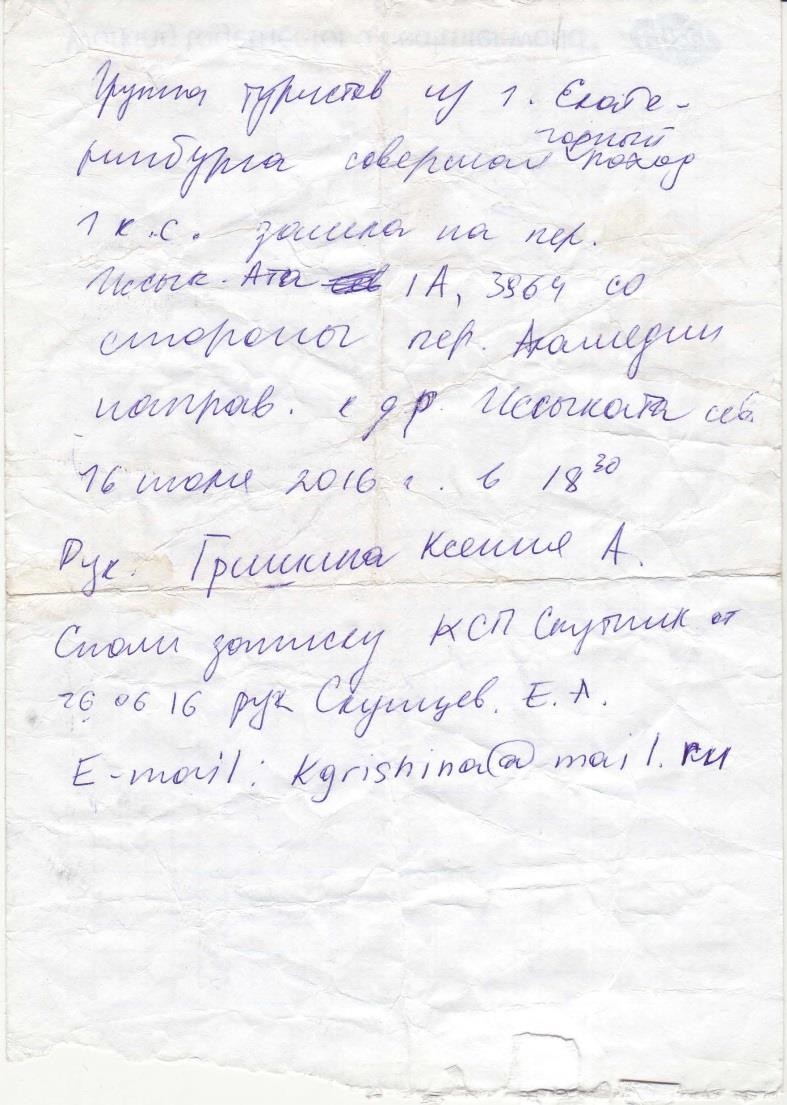 Группа туристов из г. Екате-
ринбурга совершая горный поход
1 к.с. зашла на пер.
Иссык-Ата 1А, 3964 со
стороны пер. Аламедин
направ. к др. Иссыката сев.
16 июля 2016 г. в 18 30
Рук. Гришина Ксения А.
Сняли записку КСП Спутник от
26 06 16 рук Скутцев. Е.А.
E-mail: kgrishina@mail.ru